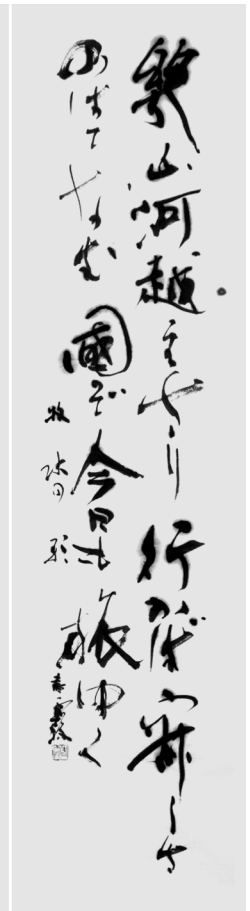 幾山河越えさり行かば寂しさ
のはてなむ國ぞ今日も旅ゆく
牧水の歌